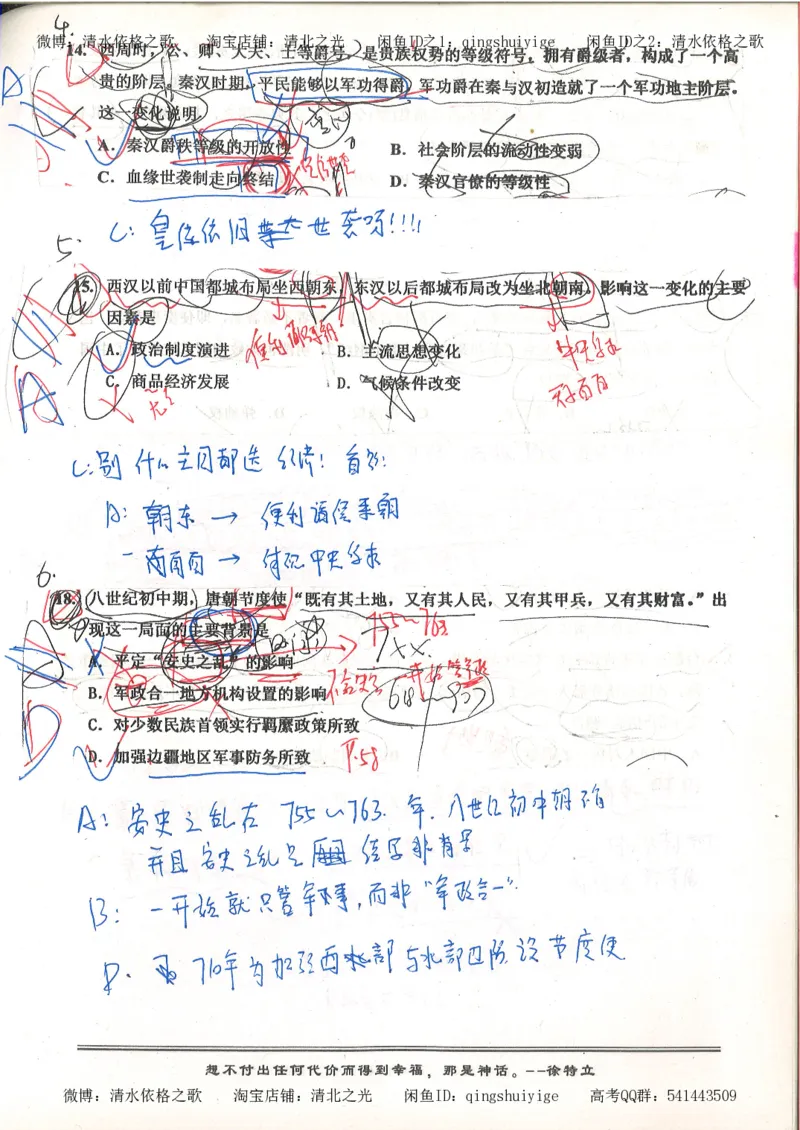 4.
微博：清水依格之歌 淘宝店铺：清北之光 闲鱼ID之1：qingshuiyige 闲鱼ID之2：清水依格之歌
14. 西周时，公、卿、大夫、士等爵号，是贵族权势的等级符号，拥有爵级者，构成了一个高
贵的阶层。秦汉时期，平民能够以军功得爵，军功爵在秦与汉初造就了一个军功地主阶层。
这一变化说明
A．秦汉爵秩等级的开放性 B．社会阶层的流动性变弱
C．血缘世袭制走向终结 D．秦汉官僚的等级性
C: 皇位依旧世袭呀!!!!
5.
15. 西汉以前中国都城布局坐西朝东，东汉以后都城布局改为坐北朝南，影响这一变化的主要
因素是
A．政治制度演进 B．主流思想变化
C．商品经济发展 D．气候条件改变
C: 别什么主因都选经济!
A: 朝东 → 便利诸侯来朝
南面 → 体现中央
6.
18. 八世纪初中期，唐朝节度使“既有其土地，又有其人民，又有其甲兵，又有其财富。”出
现这一局面的主要背景是
755~763
A．平定“安史之乱”的影响
B．军政合一地方机构设置的影响
618~907
C．对少数民族首领实行羁縻政策所致
D．加强边疆地区军事防务所致 P.58
A: 安史之乱在 755~763 年，八世纪初中期不符
并且安史之乱是结果非背景
B: 一开始就只管军事，而非“军政合一”.
D. 710年为加强西北部与北部边防设节度使
想不付出任何代价而得到幸福，那是神话。--徐特立
微博：清水依格之歌 淘宝店铺：清北之光 闲鱼ID：qingshuiyige 高考QQ群：541443509